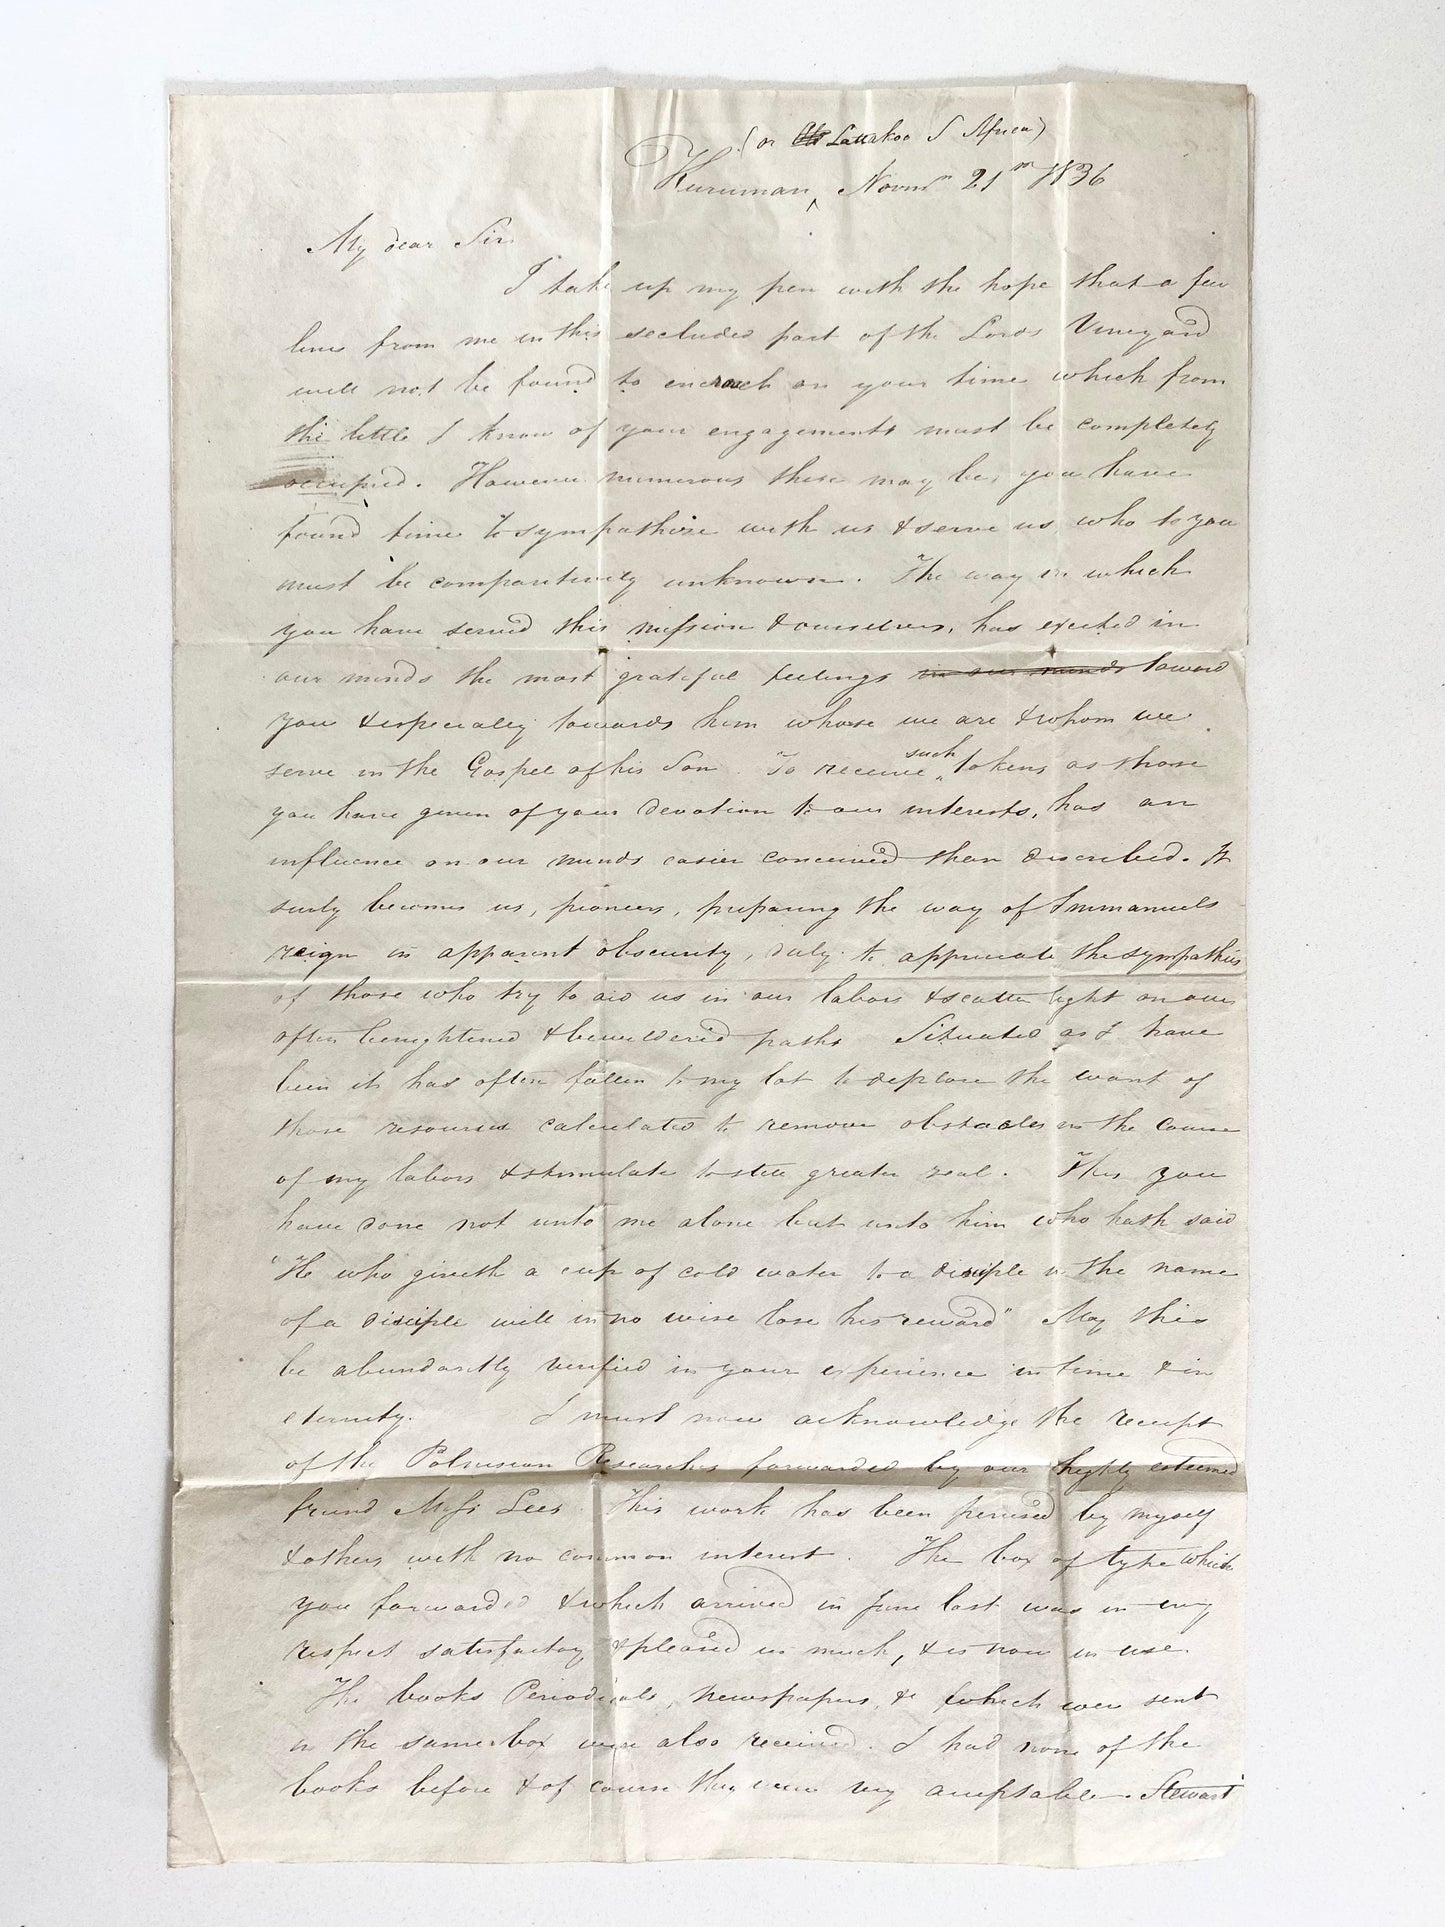 (or Lattakoo S Africa)
Kuruman, Novm 21st 1836
My dear Sir
I take up my pen with the hope that a few
lines from me in this secluded part of the Lords Vineyard
will not be found to encroach on your time which from
the little I know of your engagements must be completely
occupied. However numerous these may be, you have
found time to sympathise with us & serve us, who to you
must be comparitively unknown. The way in which
you have served this mission & ourselves, has excited in
our minds the most grateful feelings in our minds toward
you & especially towards him whose we are & whom we
serve in the Gospel of his Son. To receive such tokens as those
you have given of your devotion to our interests, has an
influence on our minds easier conceived than discribed. It
surly becomes us, pioneers, preparing the way of Immanuels
reign in apparent obscurity, duly to appreciate the sympathies
of those who try to aid us in our labors & scatter light on our
often benightened & bewildered paths Situated as I have
been it has often fallen to my lot to deplore the want of
those resources calculated to remove obstacles in the course
of my labors & stimulate to still greater zeal. This you
have done not unto me alone but unto him who hath said
"He who giveth a cup of cold water to a disciple in the name
of a disciple will in no wise lose his reward" May this
be abundantly verified in your experience in time & in
eternity. I must now acknowledge the receipt
of the Polynesian Researches forwarded by our highly esteemed
friend Miss Lees. This work has been perused by myself
& others with no common interest. The box of type which
you forwarded & which arrived in June last was in every
respect satisfactory & pleased us much, & is now in use
The books Periodicals, newspapers, &c which were sent
in the same box were also received. I had none of the
books before & of course they were very acceptable. Stewart